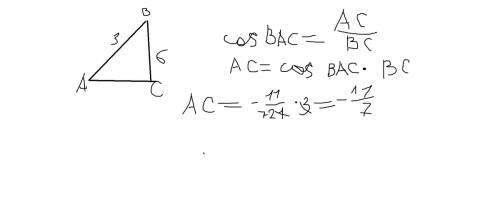 B
3
6
A
C
cos BAC = AC/BC
AC = cos BAC · BC
AC = - 11/724 · 3 = - 11/7